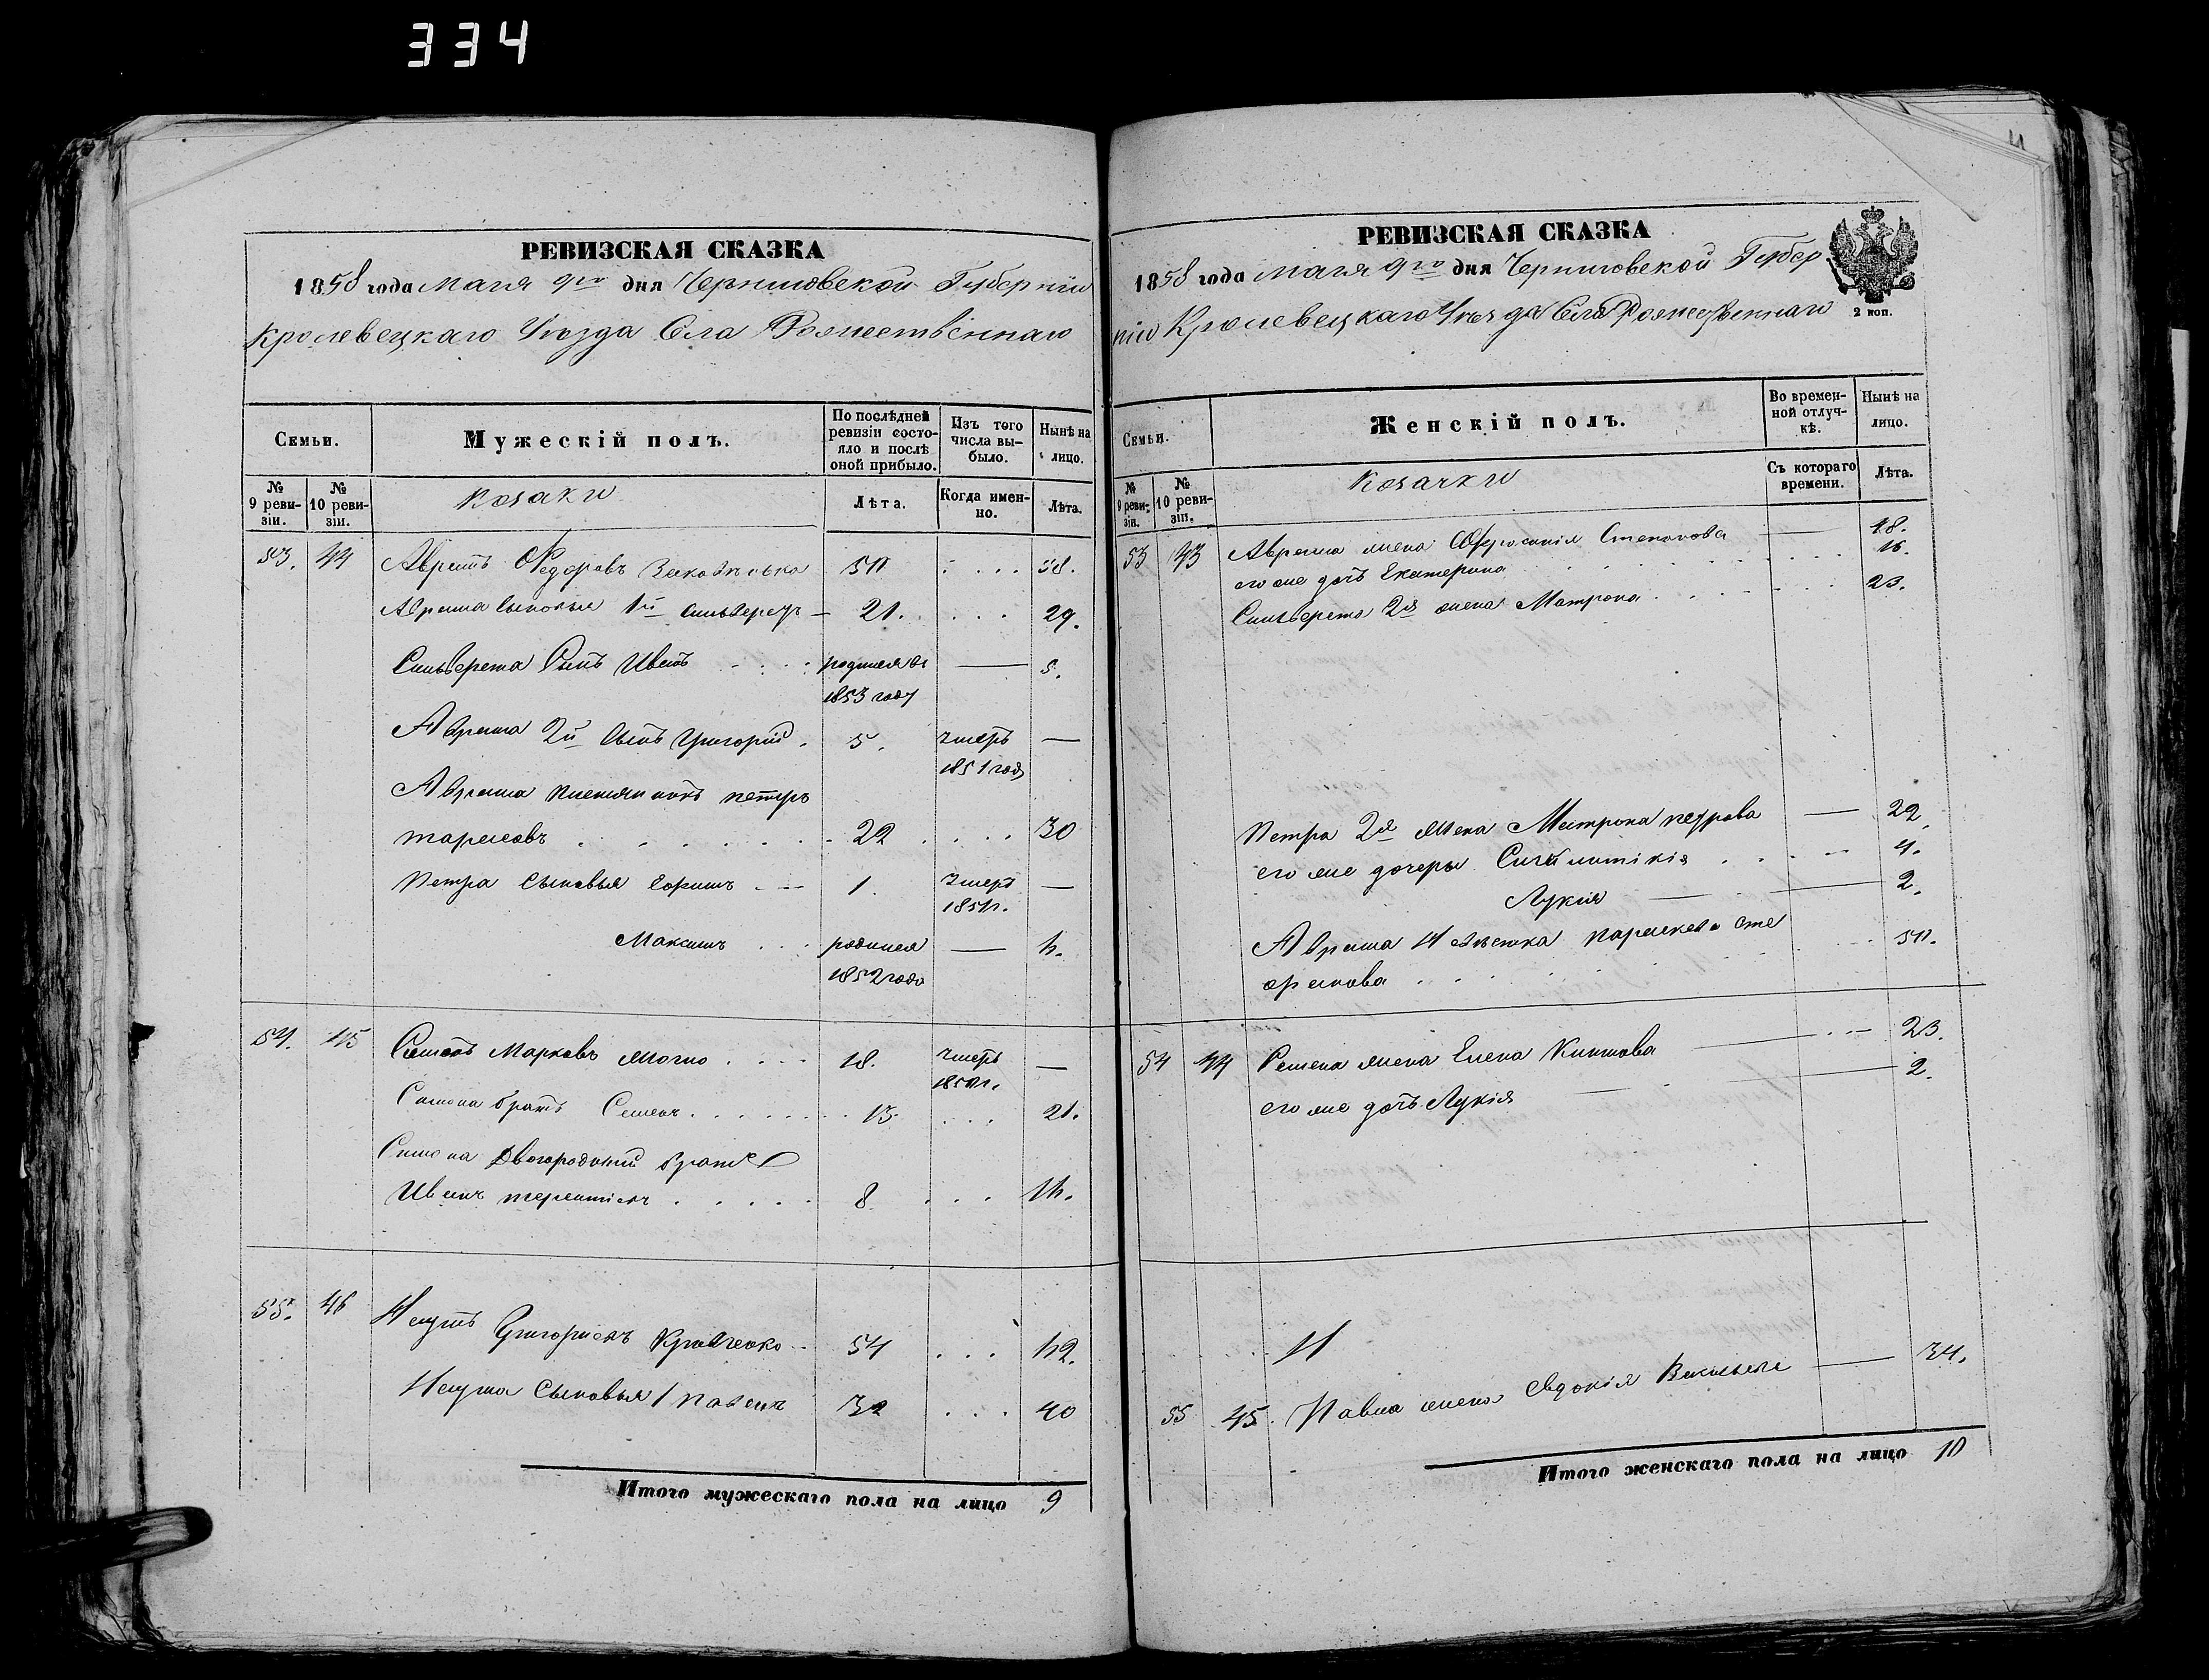 334
РЕВИЗСКАЯ СКАЗКА
1858 года Мая 9го дня Черниговской Губерніи
Кролевецкаго Уѣзда Села Рожественнаго
Семьи.
Мужескій полъ.
По послѣдней ревизіи состояло и послѣ оной прибыло.
Изъ того числа выбыло.
Нынѣ на лицо.
№ 9 ревизіи.
№ 10 ревизіи.
Козаки
Лѣта.
Когда именно.
Лѣта.
53. 44 Аврамъ Федоровъ 50 58.
Аврама сыновья 1й Сильверстъ 21. 29.
Сильверста сынъ Иванъ родился въ 1853 году 5.
Аврама 2й сынъ Григорій 5. умеръ 1851 года
Аврама племянникъ Петръ
Тарасовъ 22 30
Петра сыновья Ефимъ 1. умеръ
Максимъ родился 1852 года
54. 45 Симонъ Марковъ 18. умеръ
Симона братъ Семенъ 13 21.
Симона двоюродный братъ
Иванъ Терентіевъ 8
55. 46 Игнатъ Григорьевъ Кравченко 54
Игната сыновья 1 Павелъ 32 40
Итого мужескаго пола на лицо 9
РЕВИЗСКАЯ СКАЗКА
1858 года Мая 9го дня Черниговской Губер
ніи Кролевецкаго Уѣзда Села Рожественнаго
2 коп.
Семьи.
Женскій полъ.
Во временной отлучкѣ.
Нынѣ на лицо.
№ 9 ревизіи.
№ 10 ревизіи.
Козачки
Съ котораго времени.
Лѣта.
53 43 Аврама жена Ефросинія Степанова 48.
его же дочь Екатерина 16.
Сильверста 2я жена Матрона 23.
Петра 2я жена Матрона Петрова 22.
его же дочеры 4.
Лукія 2.
Аврама невѣстка Параскева
54 44 Семена жена Елена 23.
его же дочь Лукія 2.
55 45. Павла жена Евдокія 34.
Итого женскаго пола на лицо 10